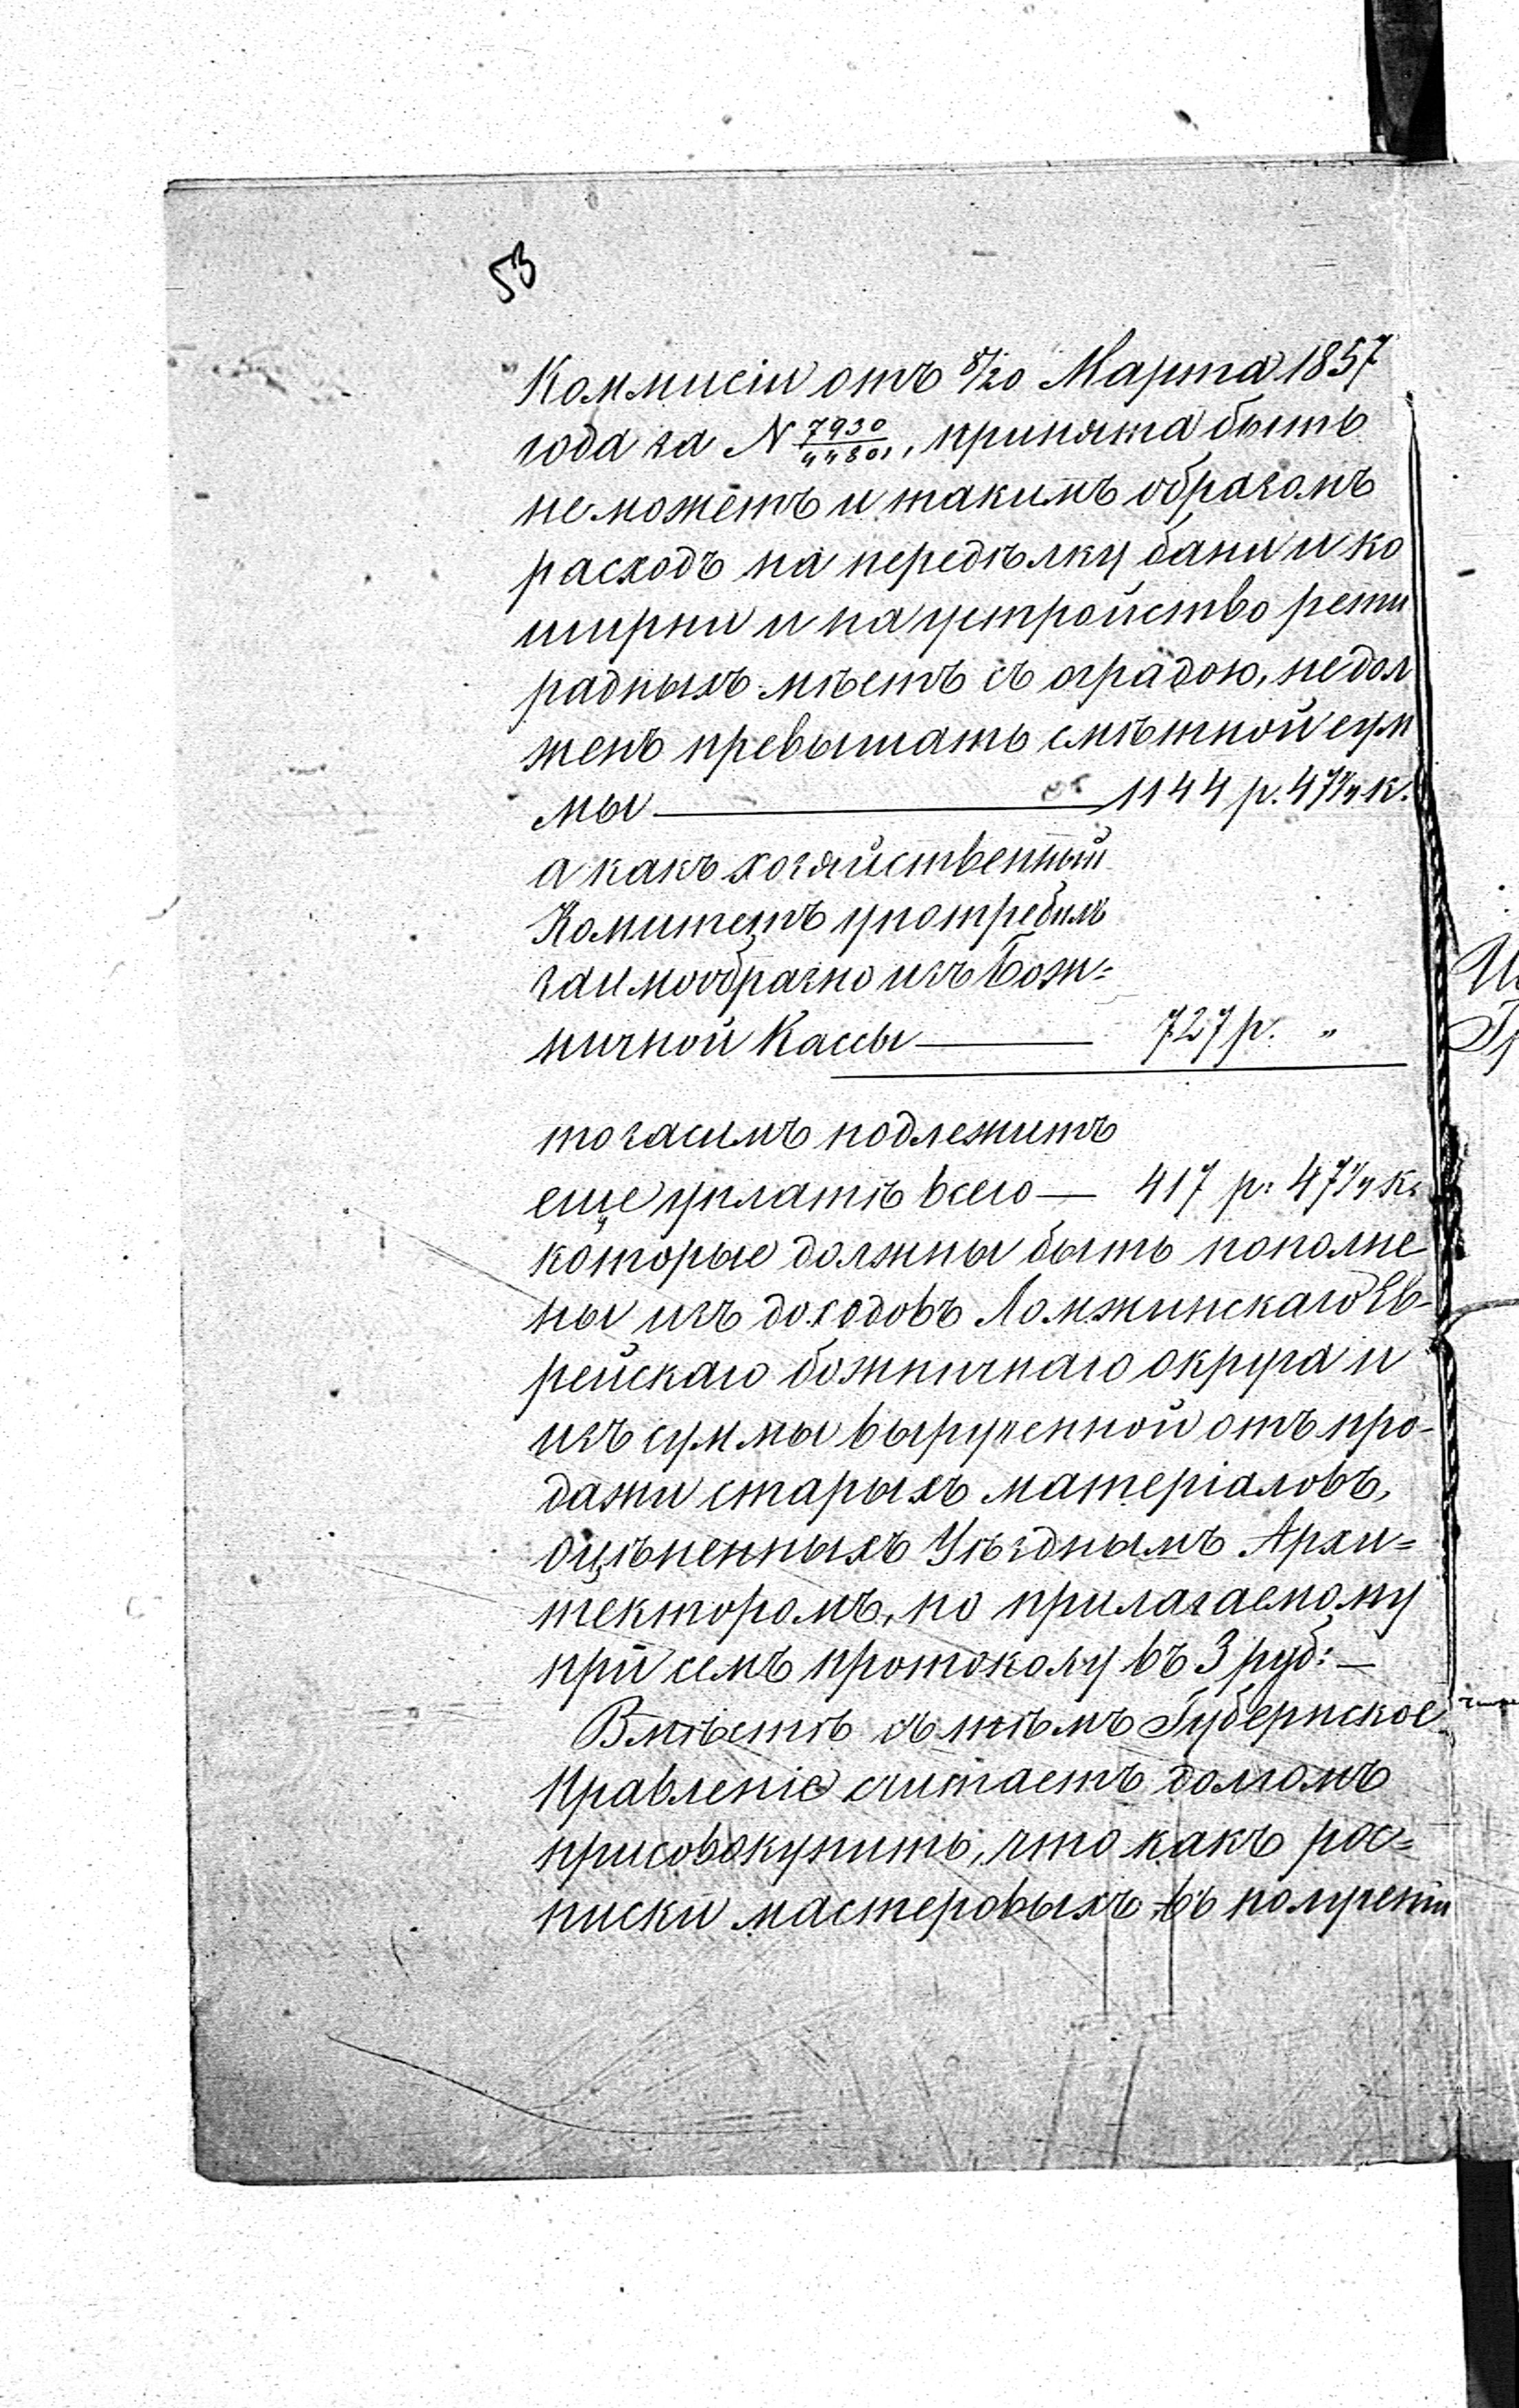 53
Коммисіи отъ 8/20 Марта 1857
года за N 7930/44801, принята быть
не можетъ и такимъ образомъ
расходъ на передѣлку бани и ко
ширни и на устройство рети
радныхъ мѣстъ съ оградою, недол
женъ превышать смѣтной сум
мы — 1144 р. 47 1/4 к.
а какъ хозяйственный
Комитетъ употребилъ
заимообразно изъ Бож=
ничной Кассы — 727 р. "
то засимъ подлежитъ
еще уплатѣ всего — 417 р: 47 1/4 к:
которые должны быть пополне
ны изъ доходовъ Ломжинскаго Ев-
рейскаго божничнаго округа и
изъ суммы вырученной отъ про-
дажи старыхъ матеріаловъ,
оцѣненныхъ Уѣзднымъ Архи=
текторомъ, по прилагаемому
при семъ протоколу въ 3 руб: —
Вмѣстѣ съ тѣмъ Губернское
Правленіе считаетъ долгомъ
присовокупить, что какъ рос=
писки мастеровыхъ въ полученіи